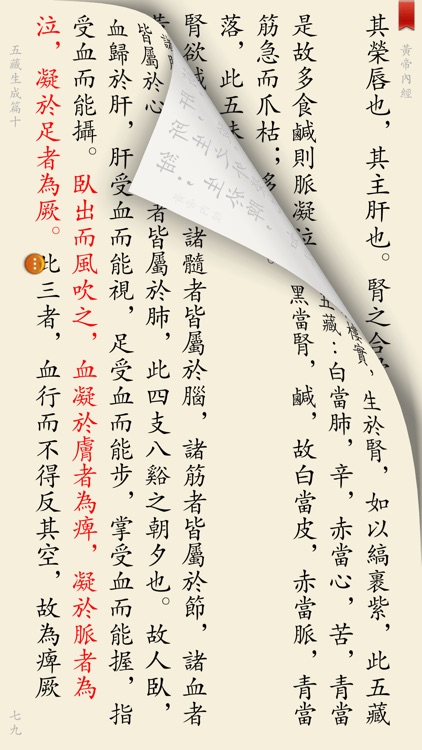 黃帝內經
其榮唇也，其主肝也。腎之
生於腎，如以縞裹紫，此五藏
樓實，
五藏：白當肺，辛，赤當心，苦，青當
是故多食鹹則脈凝泣
黑當腎，鹹，故白當皮，赤當脈，青當
筋急而爪枯；多
落，此五味
腎欲鹹
諸髓者皆屬於腦，諸筋者皆屬於節，諸血者
皆屬於心
者皆屬於肺，此四支八谿之朝夕也。故人臥，
血歸於肝，肝受血而能視，足受血而能步，掌受血而能握，指
受血而能攝。臥出而風吹之，血凝於膚者為痺，凝於脈者為
泣，凝於足者為厥。此三者，血行而不得反其空，故為痺厥
五藏生成篇十
七九